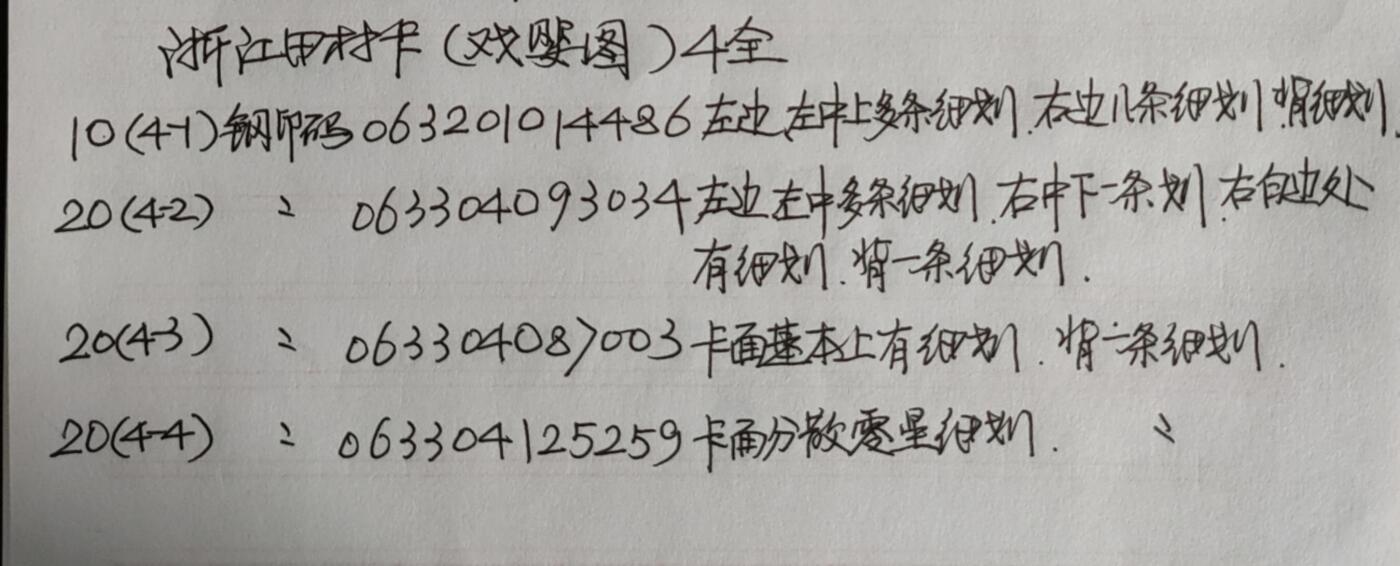 浙江田村卡(戏婴图)4全
10(4-1)钢印码063201014486左边,左中上多条细划.右边八条细划.背细划.
20(4-2) 〃 063304093034左边左中多条细划.右中下一条划.右白边处
有细划.背一条细划.
20(4-3) 〃 063304087003卡面基本上有细划.背二条细划.
20(4-4) 〃 063304125259卡面分散零星细划. 〃